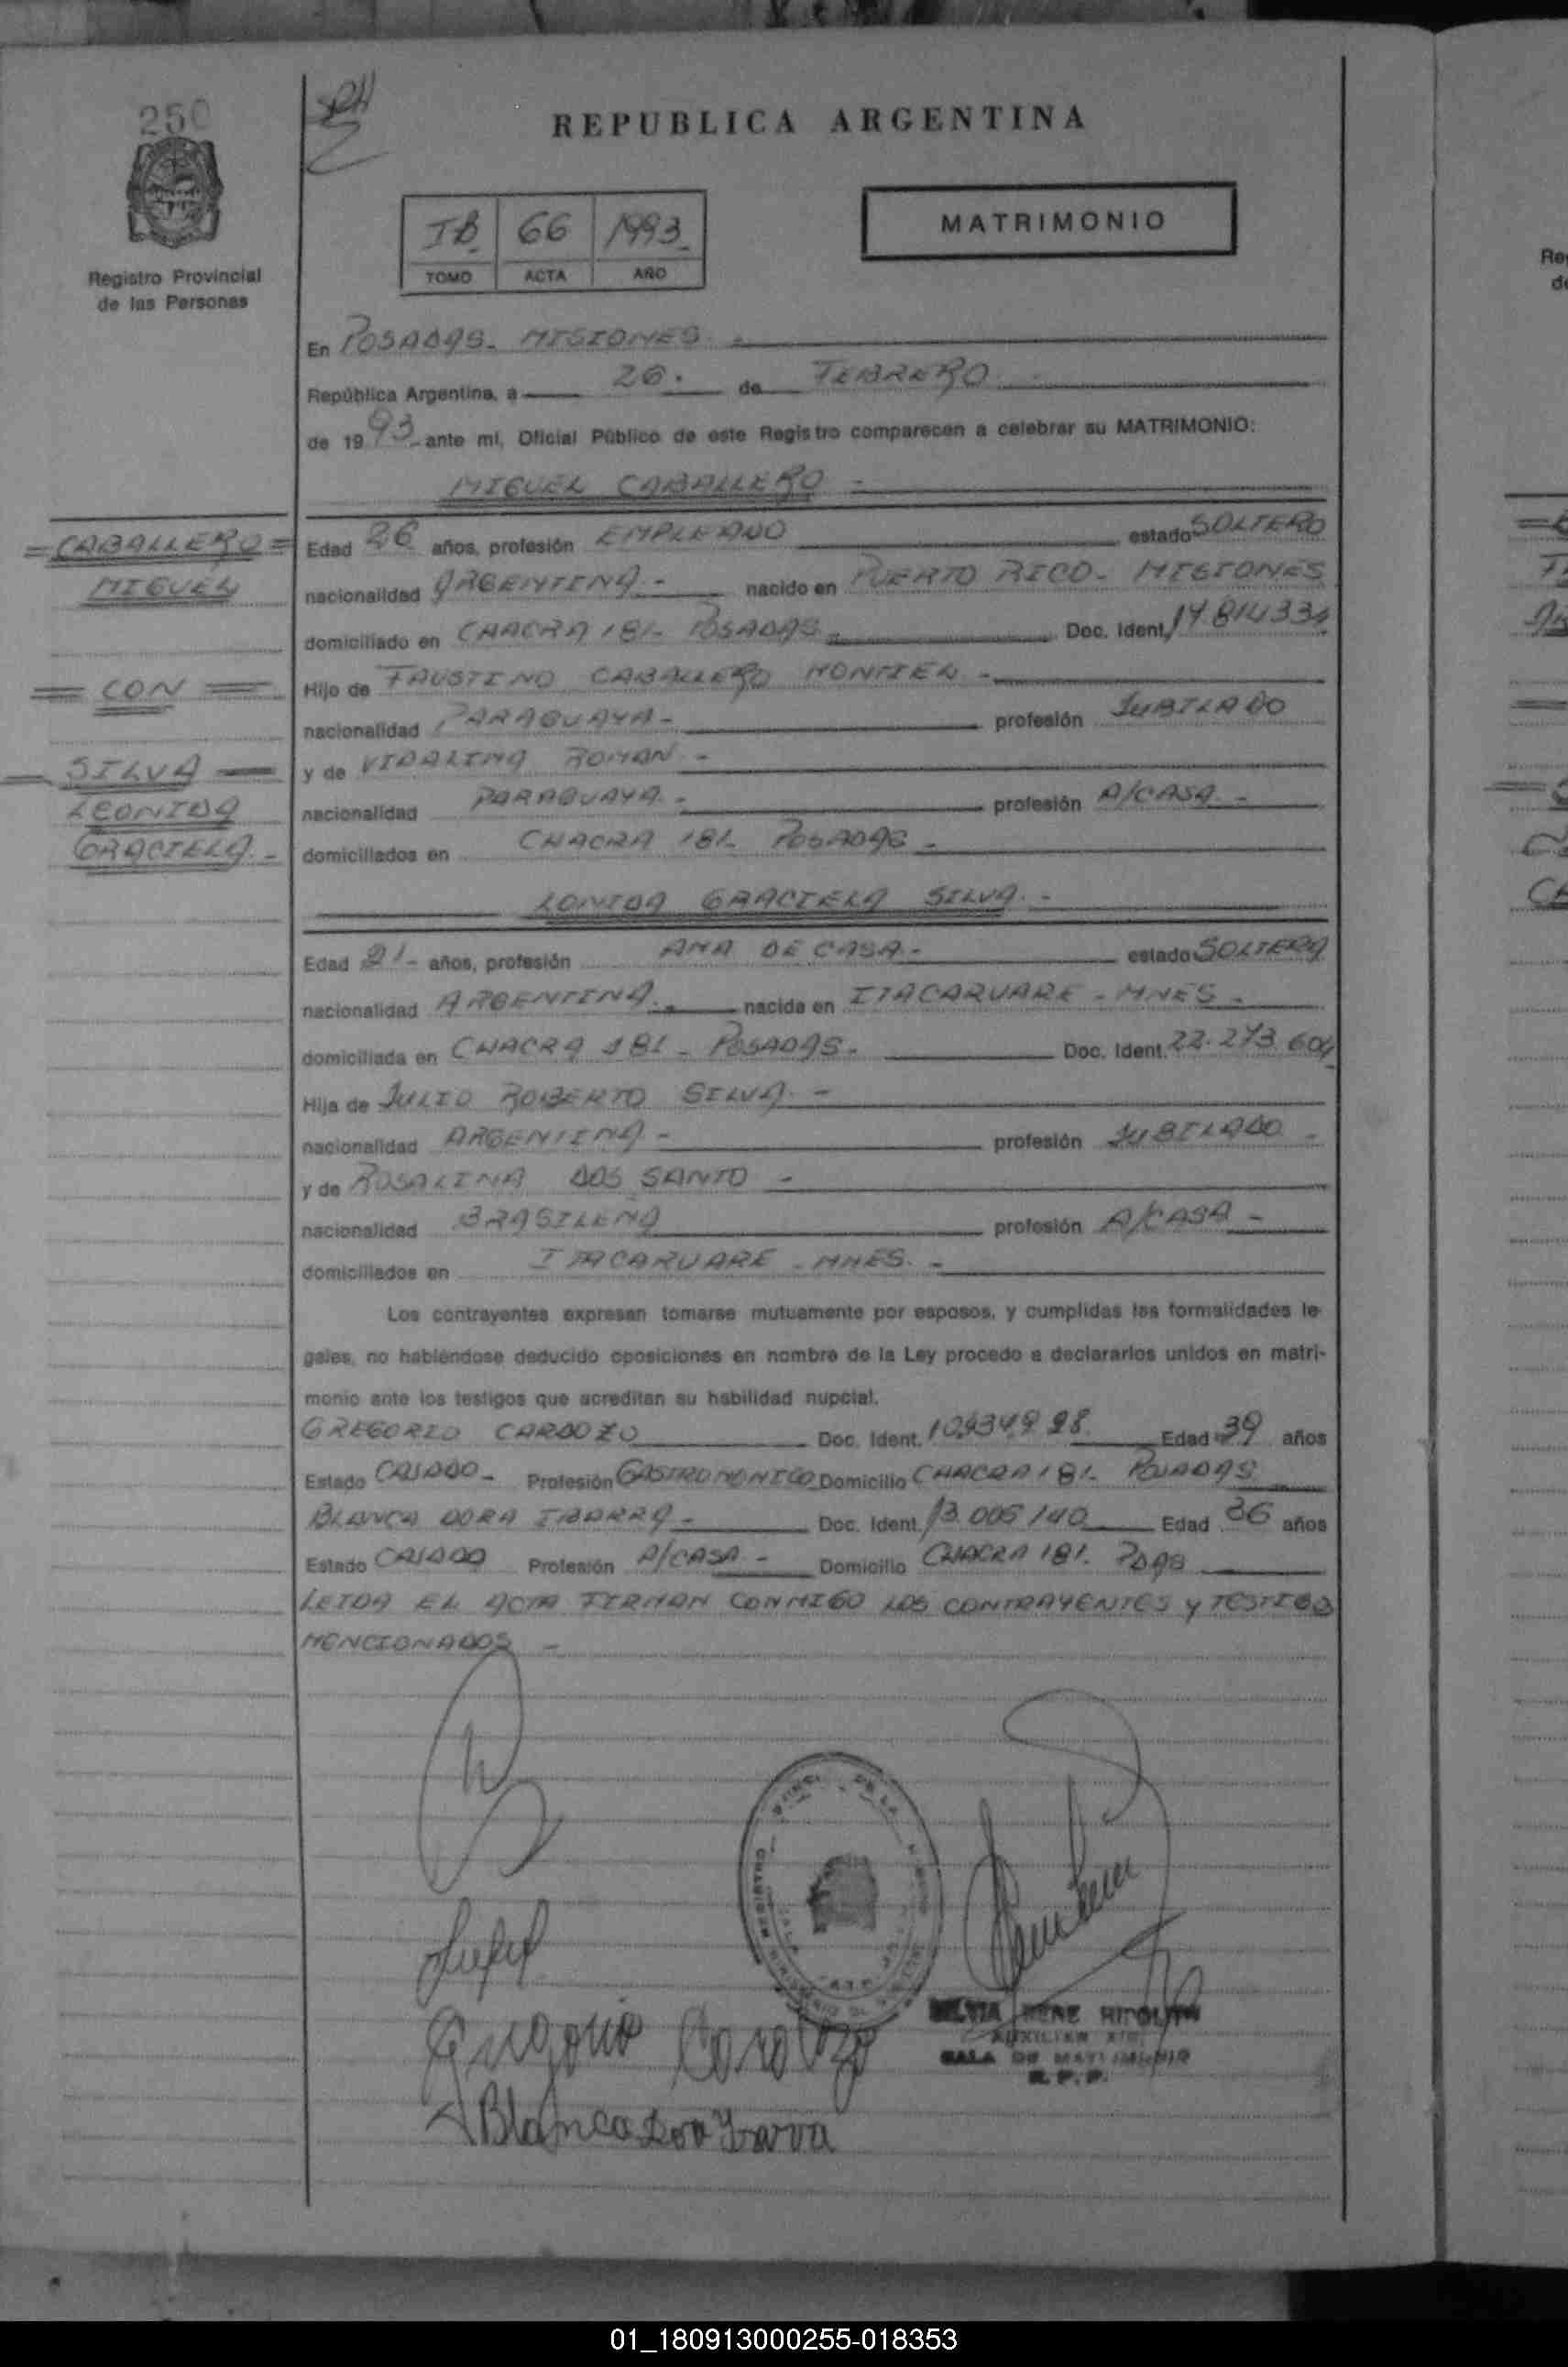 250
REPUBLICA ARGENTINA
IB 66 1993
TOMO ACTA AÑO
MATRIMONIO
Registro Provincial
de las Personas
En POSADAS - MISIONES -
República Argentina, a 26. de FEBRERO
de 1993 ante mí, Oficial Público de este Registro comparecen a celebrar su MATRIMONIO:
MIGUEL CABALLERO -
= CABALLERO =
MIGUEL
= CON =
SILVA
LEONIDA
GRACIELA -
Edad 26 años, profesión EMPLEADO estado SOLTERO
nacionalidad ARGENTINA - nacido en PUERTO RICO - MISIONES
domiciliado en CHACRA 181 - POSADAS Doc. Ident. 17.814.334
Hijo de FAUSTINO CABALLERO MONTIEL -
nacionalidad PARAGUAYA - profesión JUBILADO
y de VIDALINA ROMAN -
nacionalidad PARAGUAYA - profesión A/CASA -
domiciliados en CHACRA 181 - POSADAS -
LONIDA GRACIELA SILVA -
Edad 21 - años, profesión AMA DE CASA - estado SOLTERA
nacionalidad ARGENTINA - nacida en ITACARUARE - MNES -
domiciliada en CHACRA 181 - POSADAS - Doc. Ident. 22.273.604
Hija de JULIO ROBERTO SILVA -
nacionalidad ARGENTINA - profesión JUBILADO -
y de ROSALINA DOS SANTO -
nacionalidad BRASILEÑA profesión A/CASA -
domiciliados en ITACARUARE - MNES -
Los contrayentes expresan tomarse mutuamente por esposos, y cumplidas las formalidades le-
gales, no habiéndose deducido oposiciones en nombre de la Ley procedo a declararlos unidos en matri-
monio ante los testigos que acreditan su habilidad nupcial.
GREGORIO CARDOZO Doc. Ident. Edad 39 años
Estado CASADO - Profesión GASTRONOMICO Domicilio CHACRA 181 - POSADAS
BLANCA DORA IBARRA - Doc. Ident. 13.005.140 Edad 36 años
Estado CASADA Profesión A/CASA - Domicilio CHACRA 181 - PDAS
LEIDA EL ACTA FIRMAN CONMIGO LOS CONTRAYENTES Y TESTIGO
MENCIONADOS -
Gregorio Cardozo
SILVIA IRENE
SALA DE MATRIMONIO
R.P.P.
Blanca Dora Ibarra
01_180913000255-018353